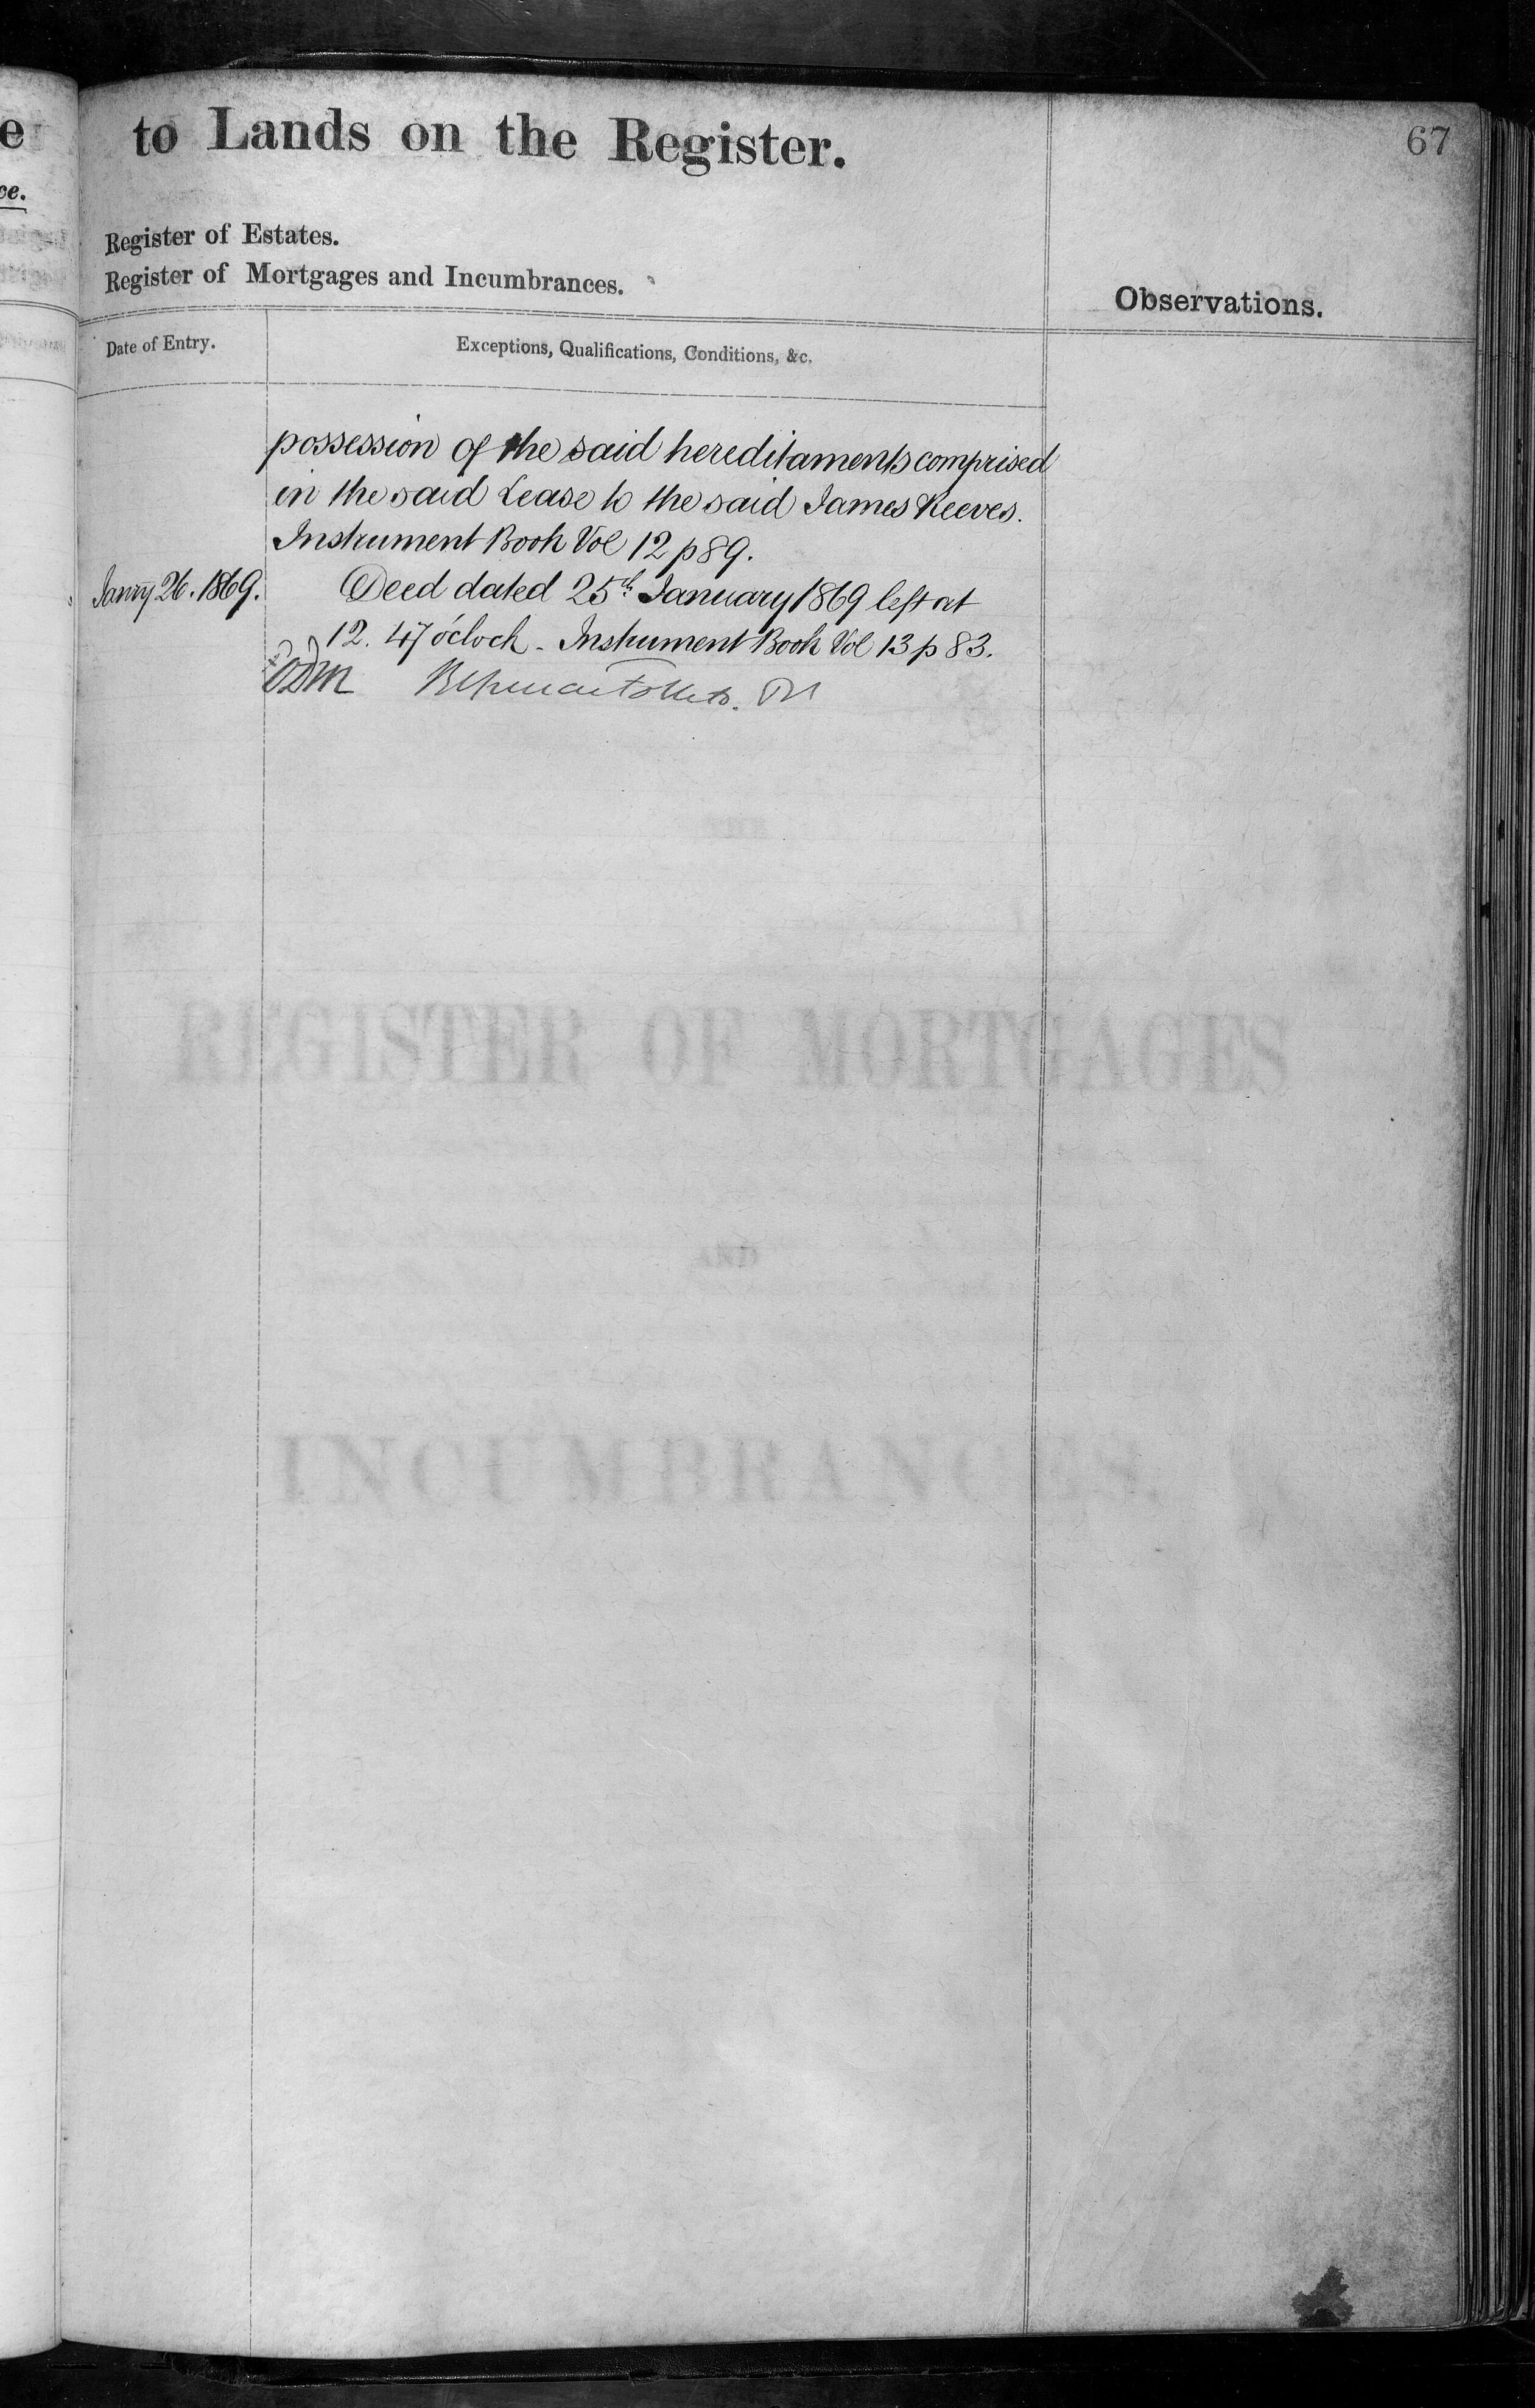 to Lands on the Register.
67
Register of Estates.
Register of Mortgages and Incumbrances.
Observations.
Date of Entry.
Exceptions, Qualifications, Conditions, &c.
possession of the said hereditaments comprised
in the said Lease to the said James Reeves.
Instrument Book Vol 12 p 89.
Janry 26. 1869.
Deed dated 25th January 1869 left at
12. 47 o'clock - Instrument Book Vol 13 p 83.
THE
REGISTER OF MORTGAGES
AND
INCUMBRANCES.